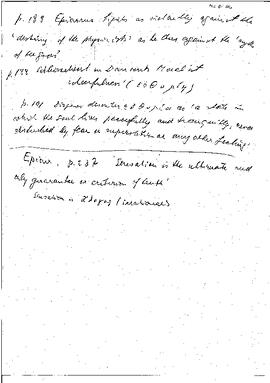 p. 189 Epicurus fights as violently against the
'destiny of the physicists' as he does against the 'myths
of the gods'
p. 189 achievement in Democritus' Moralist
cheerfulness (εὐθυμίη)
p. 191 Diogenes describes εὐθυμία as 'a state in
which the soul lives peacefully and tranquilly, never
disturbed by fear or superstition or any other feeling'.
Epicur. p. 237 'Sensation is the ultimate and
only guarantee or criterion of truth'
Sensation is ἄλογος (irrational)